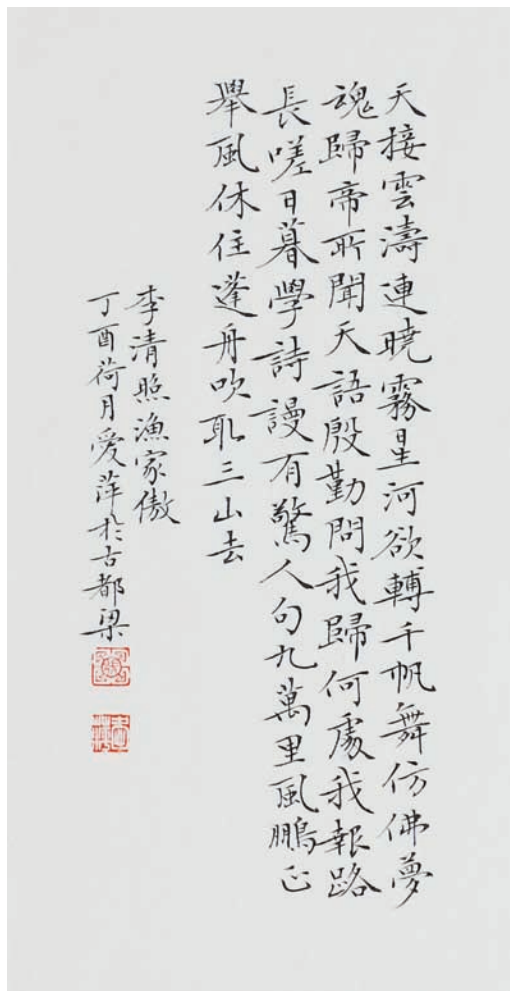 天接雲濤連曉霧星河欲轉千帆舞仿佛夢
魂歸帝所聞天語殷勤問我歸何處我報路
長嗟日暮學詩謾有驚人句九萬里風鵬正
舉風休住蓬舟吹取三山去
李清照漁家傲
丁酉荷月愛萍於古都梁